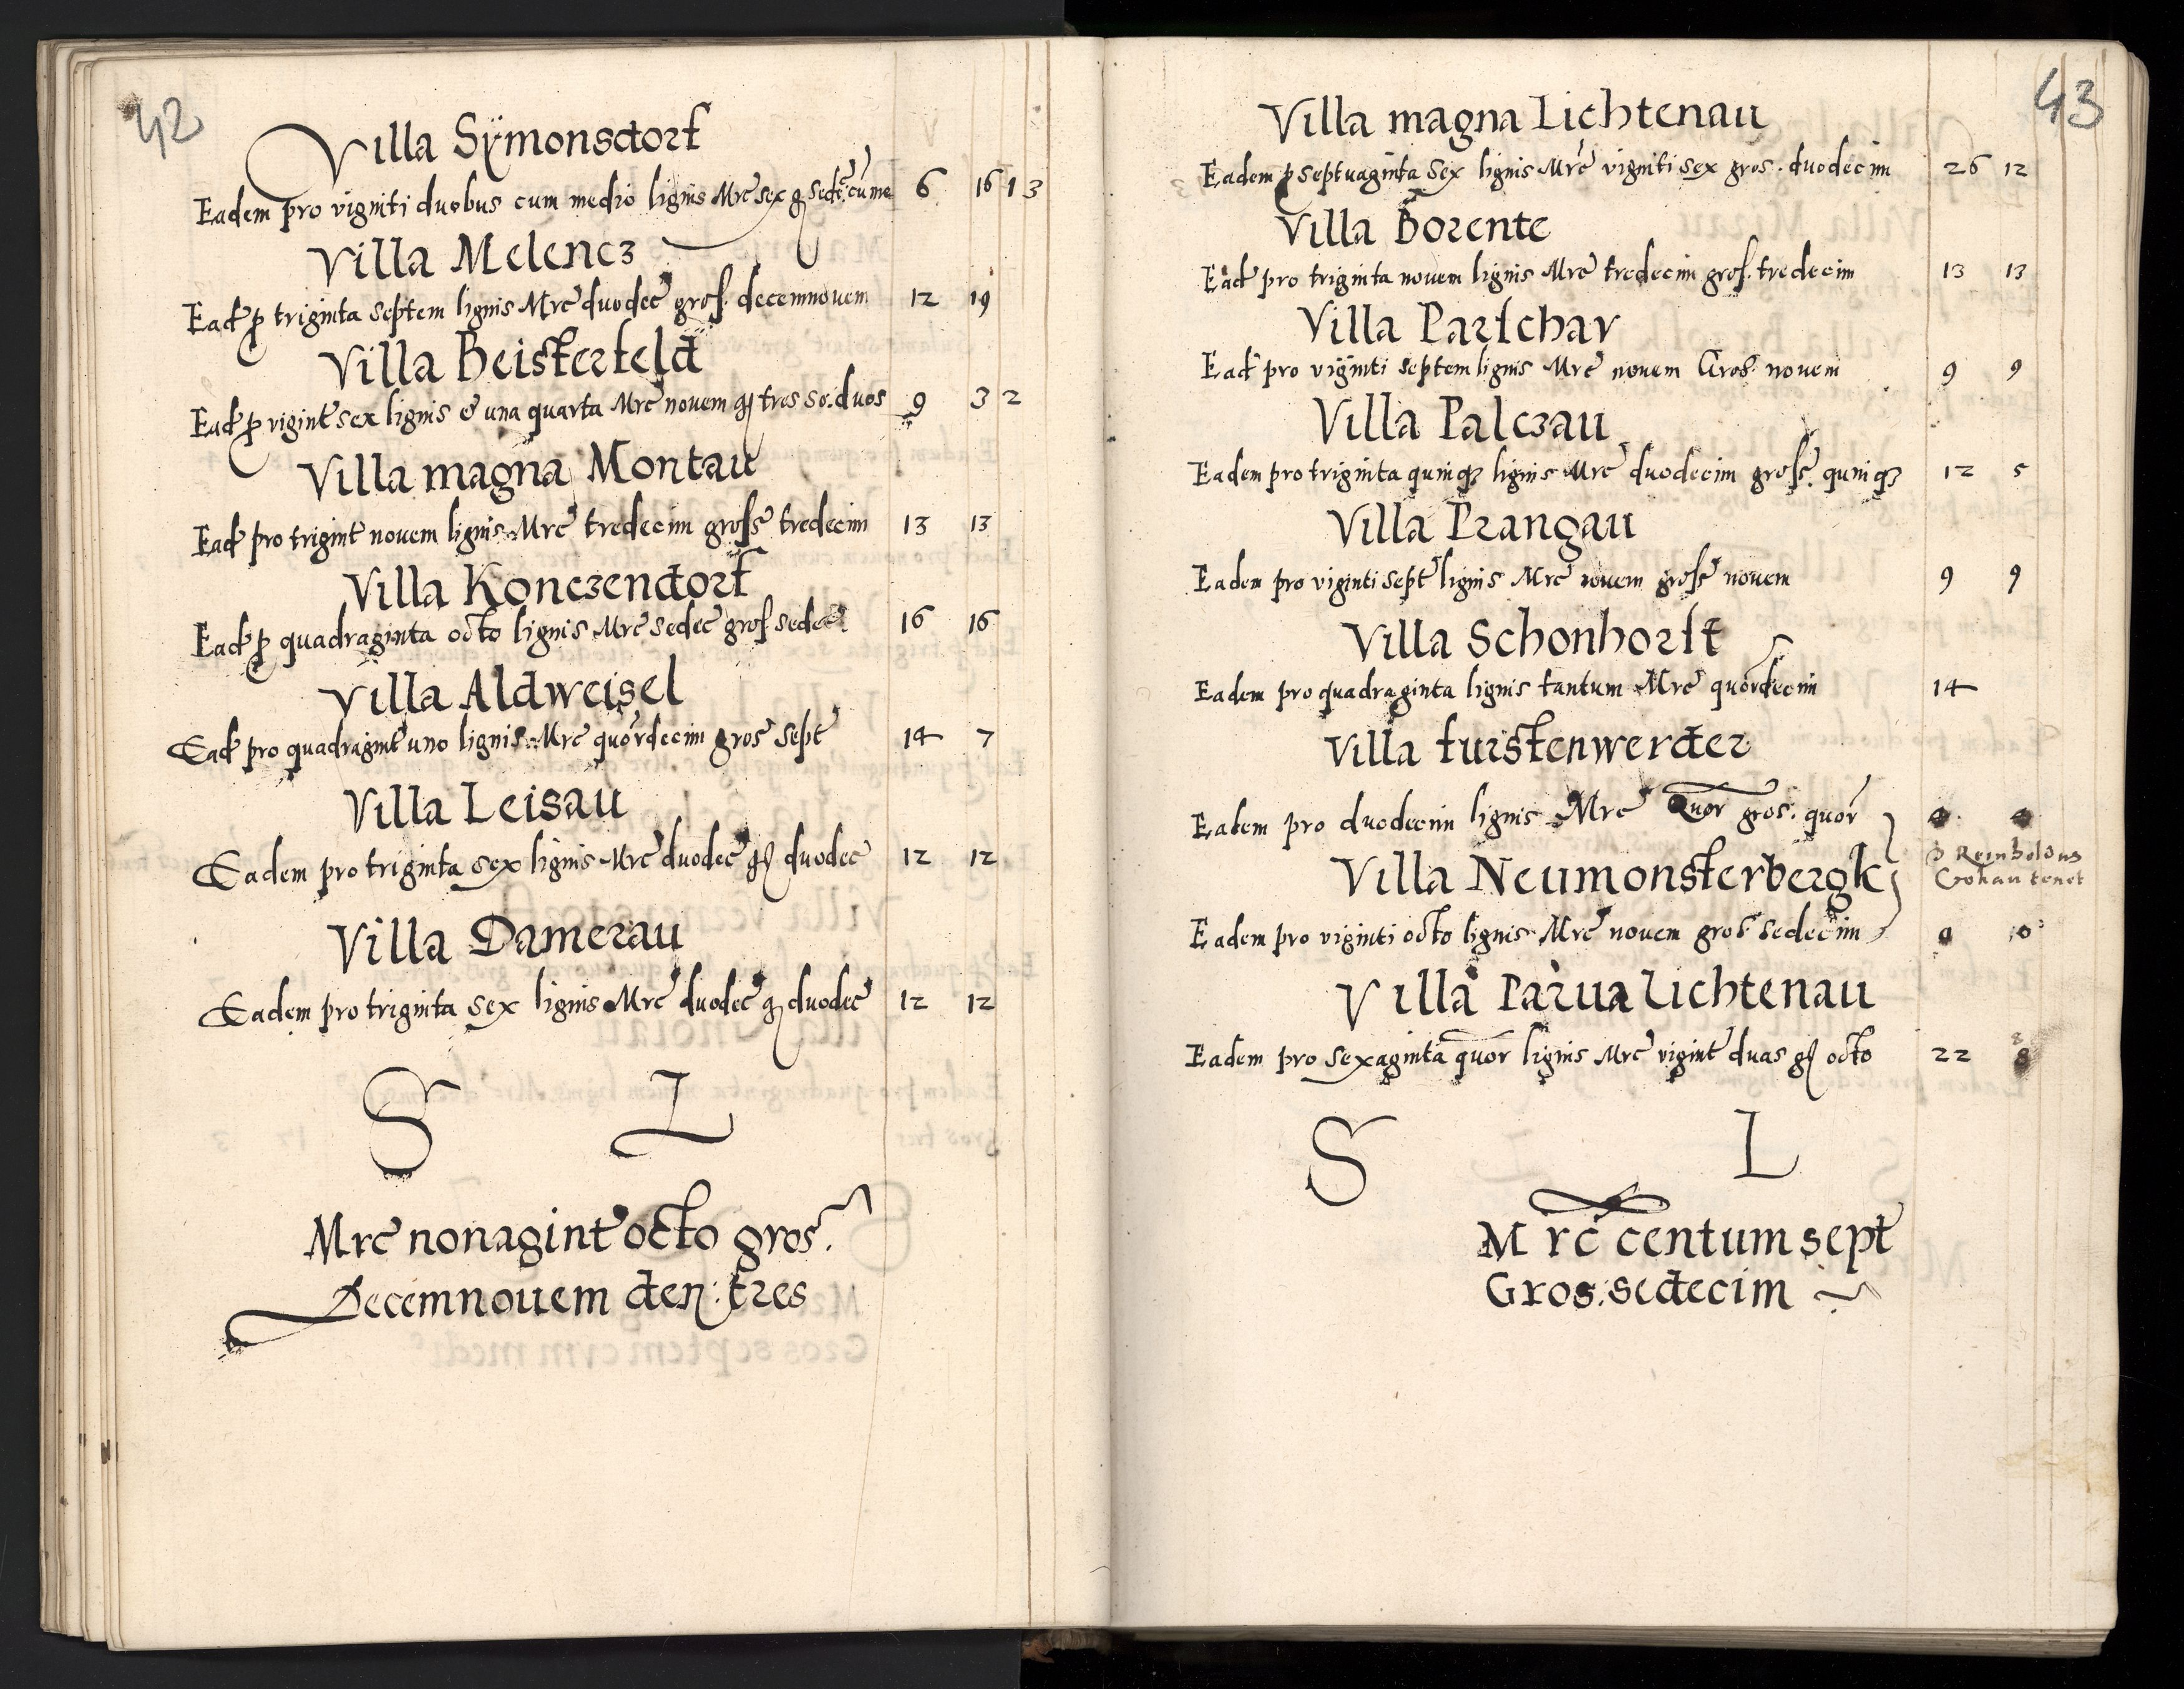 42
Villa Sÿmonsdorf
Eadem pro viginti duobus cum medio lignis Mrc sex g sedc cũ me 6 16 1 3
Villa Melencz
Ead p triginta septem lignis Mrc duodec gros. decemnouem 12 19
Villa Beisterfeld
Ead p vigint sex lignis & una quarta Mrc novem g tres so. duos 9 3 2
Villa magna Montau
Ead pro trigint novem lignis Mrc tredecim gross tredecim 13 13
Villa Konczendorf
Ead p quadraginta octo lignis Mrc sedec gros sedec. 16 16
Villa Aldweisel
Ead pro quadragint uno lignis Mrc quordecim gros sept 14 7
Villa Leisau
Eadem pro triginta sex lignis Mrc duodec g duodec 12 12
Villa Damerau
Eadem pro triginta sex lignis Mrc duodec g duodec 12 12
S L
Mrc nonagint octo gros.
Decemnouem den: tres
43
Villa magna Lichtenau
Eadem p septuaginta sex lignis Mrc viginti sex gros. duodecim 26 12
Villa Borente
Ead pro triginta novem lignis Mrc tredecim gros. tredecim 13 13
Villa Partchav
Ead pro viginti septem lignis Mrc novem Gros. novem 9 9
Villa Palczau
Eadem pro triginta quinqz lignis Mrc duodecim gross. quinqz 12 5
Villa Prangau
Eadem pro viginti sept lignis Mrc novem gross novem 9 9
Villa Schonhorst
Eadem pro quadraginta lignis tantum Mrc quordecim 14
Villa furstenwerder
Eadem pro duodecim lignis Mrc Quor gros. quor
Villa Neumonsterbergk
Reinholdus
tenet
Eadem pro viginti octo lignis Mrc novem gros sedecim
Villa Parua Lichtenau
Eadem pro sexaginta quor lignis Mrc vigint duas g octo 22 8
S L
Mrc centum sept
Gros: sedecim